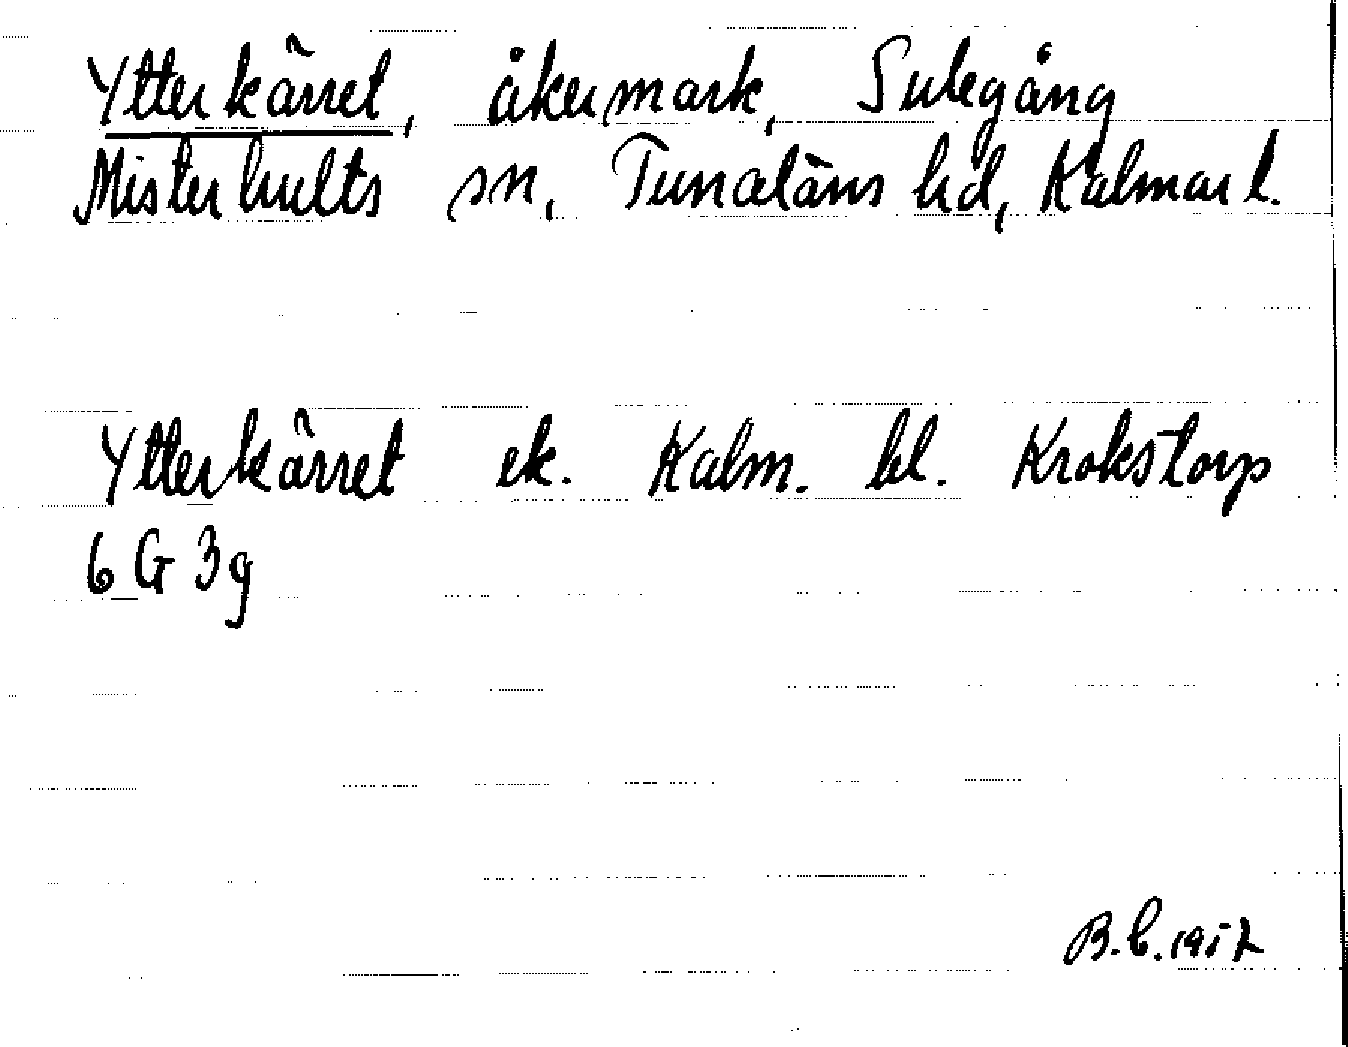 Ytterkärret, åkermark, Sulegång
Misterhults sn, Tunaläns hd, Kalmar l.
Ytterkärret ek. Kalm. bl. Krokstorp
6 G 3g